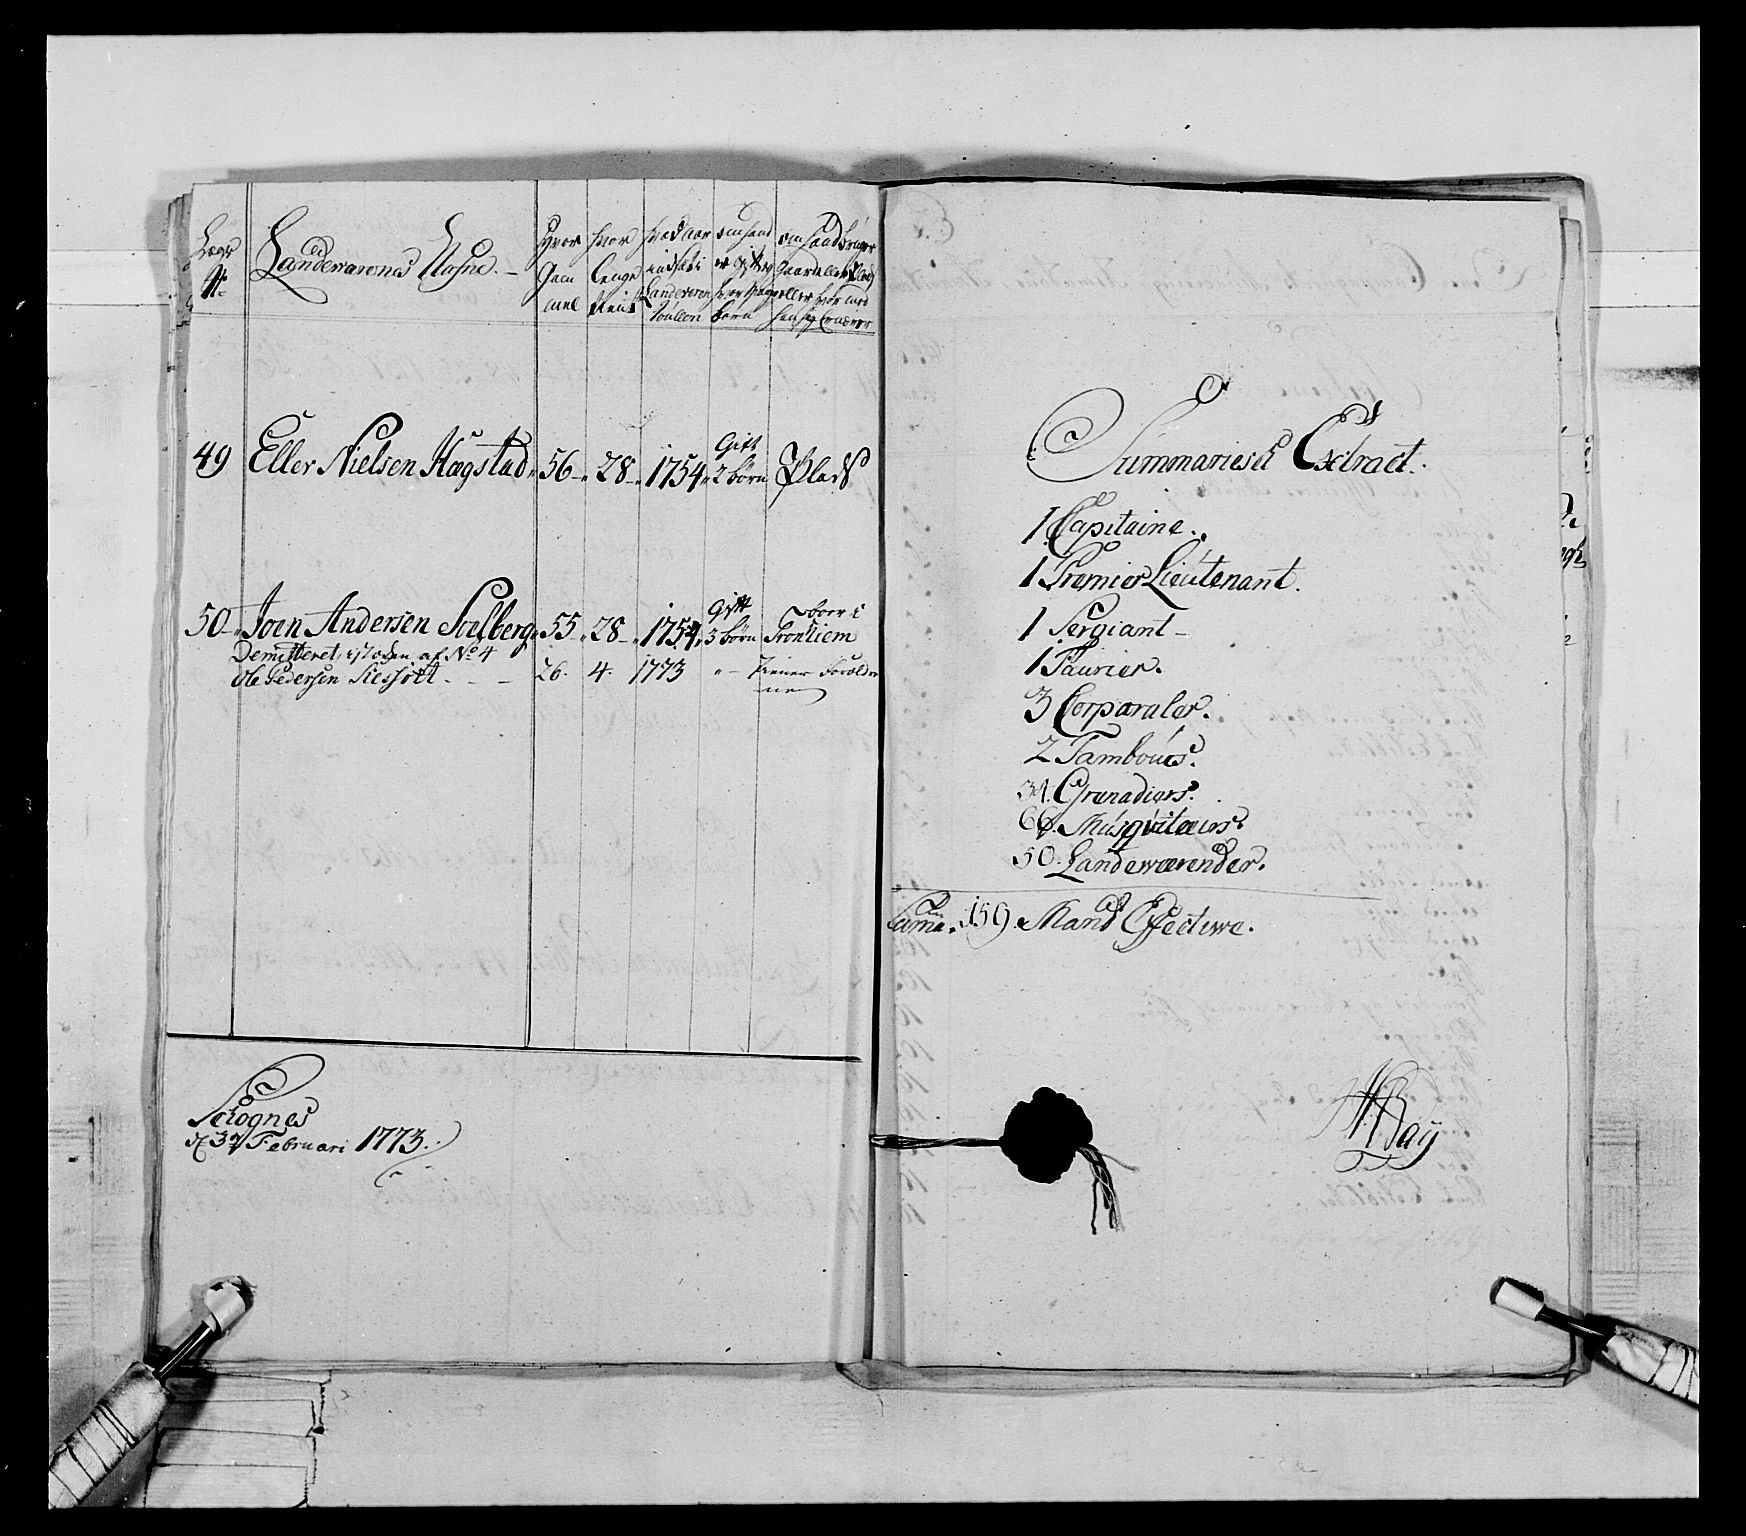 Lægs
No
Landeværenes Nafne. –
Hvor
Gam
mel
hvor
lenge
tient
hvad aar
indsat i
Landeværen
om hand
er gift og
hvor mange
børn
om hand bruger
Gaard eller Plads
eller
49 Eller Nielsen Hægstad 56 „ 28 „ 1754 „ Gift 2 børn Plads
50 „ Joen Andersen Soelberg „ 55 „ 28 „ 1754 „ Gift 3 børn boer i Trontiem
Demitteret, igien af No 4
Ole Pedersen 26. 4. 1773 „ – tiener Foreldre
ne
Selognes
d 3de Februari 1773.
Summariesch Extract.
1 Capitaine.
1 Premier Lieutenant.
1 Sergiant –
1 Faurier.
3 Corporaler.
2 Tambours.
34. Grenadiers.
66. Musqviteurs.
50. Landeværender.
Suma. 159. Mand Effective.